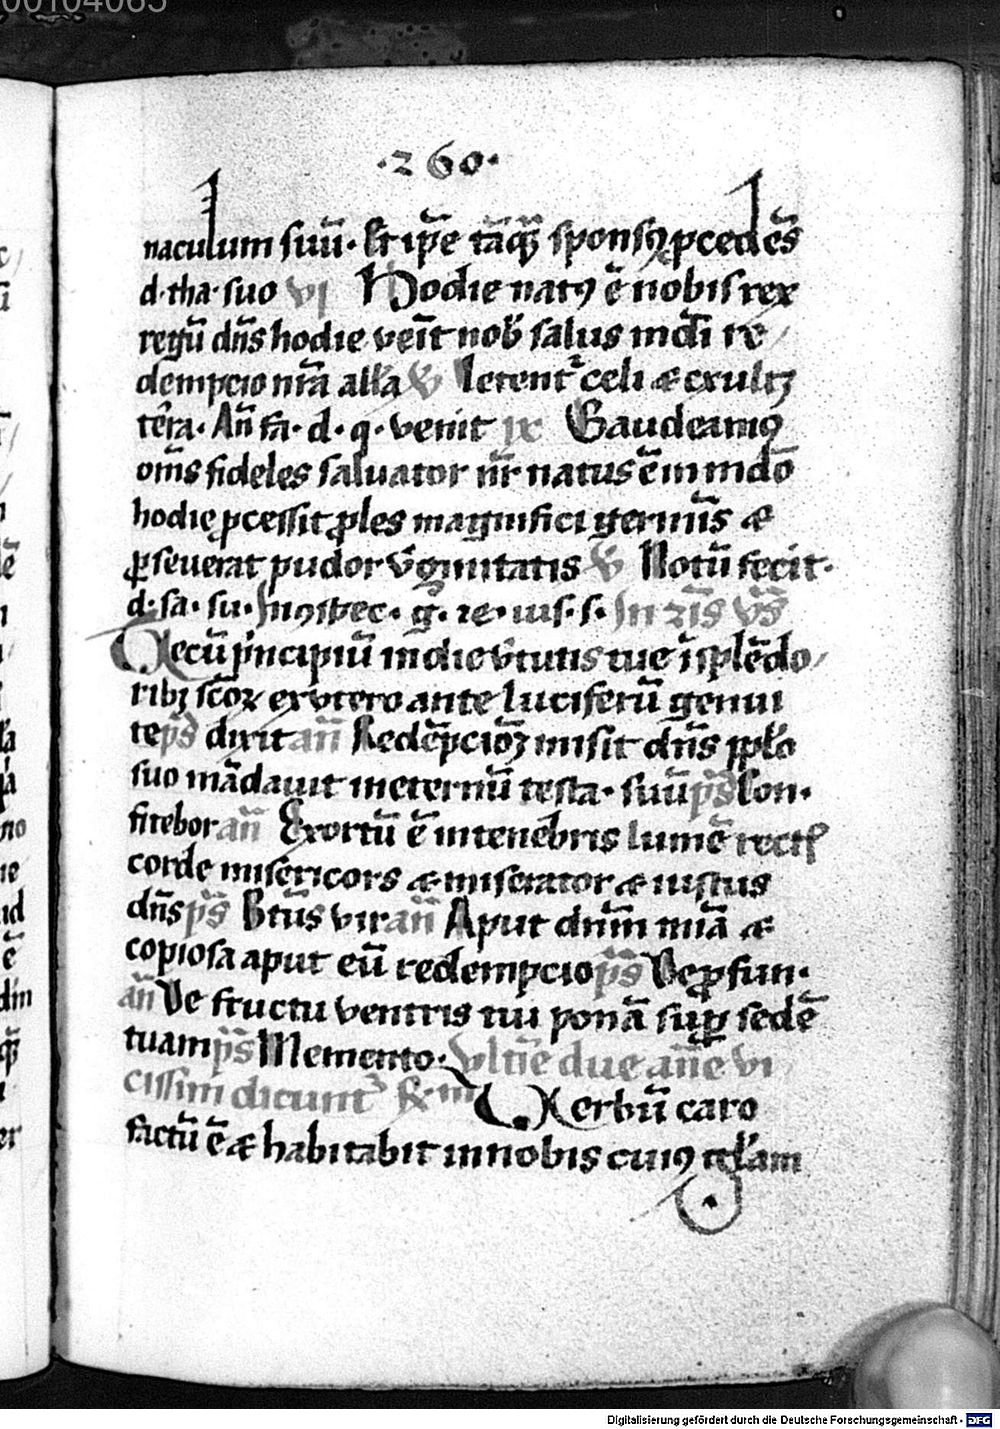 00104065
·260·
naculum suū· Et ip̄e tāq̄ȝ sponsꝰ ꝓcedēs
d·tha·suo vj Hodie natꝰ ē nobis rex
regū dn̄s hodie veīt nob̄ salus mūdi re
dempcio nr̄a all̄a ℣ letent͛ celi ⁊ exultȝ
tēra· An̄ fa· d· q· venit ix Gaudeamꝰ
om̄s fideles saluator nr̄ natus ē in mdō
hodie ꝓcessit ꝓles magnifici germīs ⁊
ꝑseuerat pudor v̄ginitatis ℣ Notū fecit·
d· sa· su· In ꝯspec· g· re· ius· s· In
Tecū principiū in die v̄tutis tue ī splēdo
ribȝ sc̄oꝝ ex vtero ante luciferū genui
te ps̄ dixit an̄ Redēpcionē misit dn̄s ppl̄o
suo mādauit in eternū testa· suū ps̄ Con·
fitebor an̄ Exortū ē in tenebris lumē rectꝭ
corde misericors ⁊ miserator ⁊ iustus
dn̄s ps̄ Btūs vir an̄ Aput dnm̄ mīa ⁊
copiosa aput eū redempcio ps̄ De ꝓfun·
an̄ De fructu ventris tui ponā suꝑ sedē
tuam ps̄ Memento· Vltīe due an̄e vi
cissim dicunt͛
Verbū caro
factū ē ⁊ habitabit in nobis cuiꝰ gl̄am
Digitalisierung gefördert durch die Deutsche Forschungsgemeinschaft - DFG